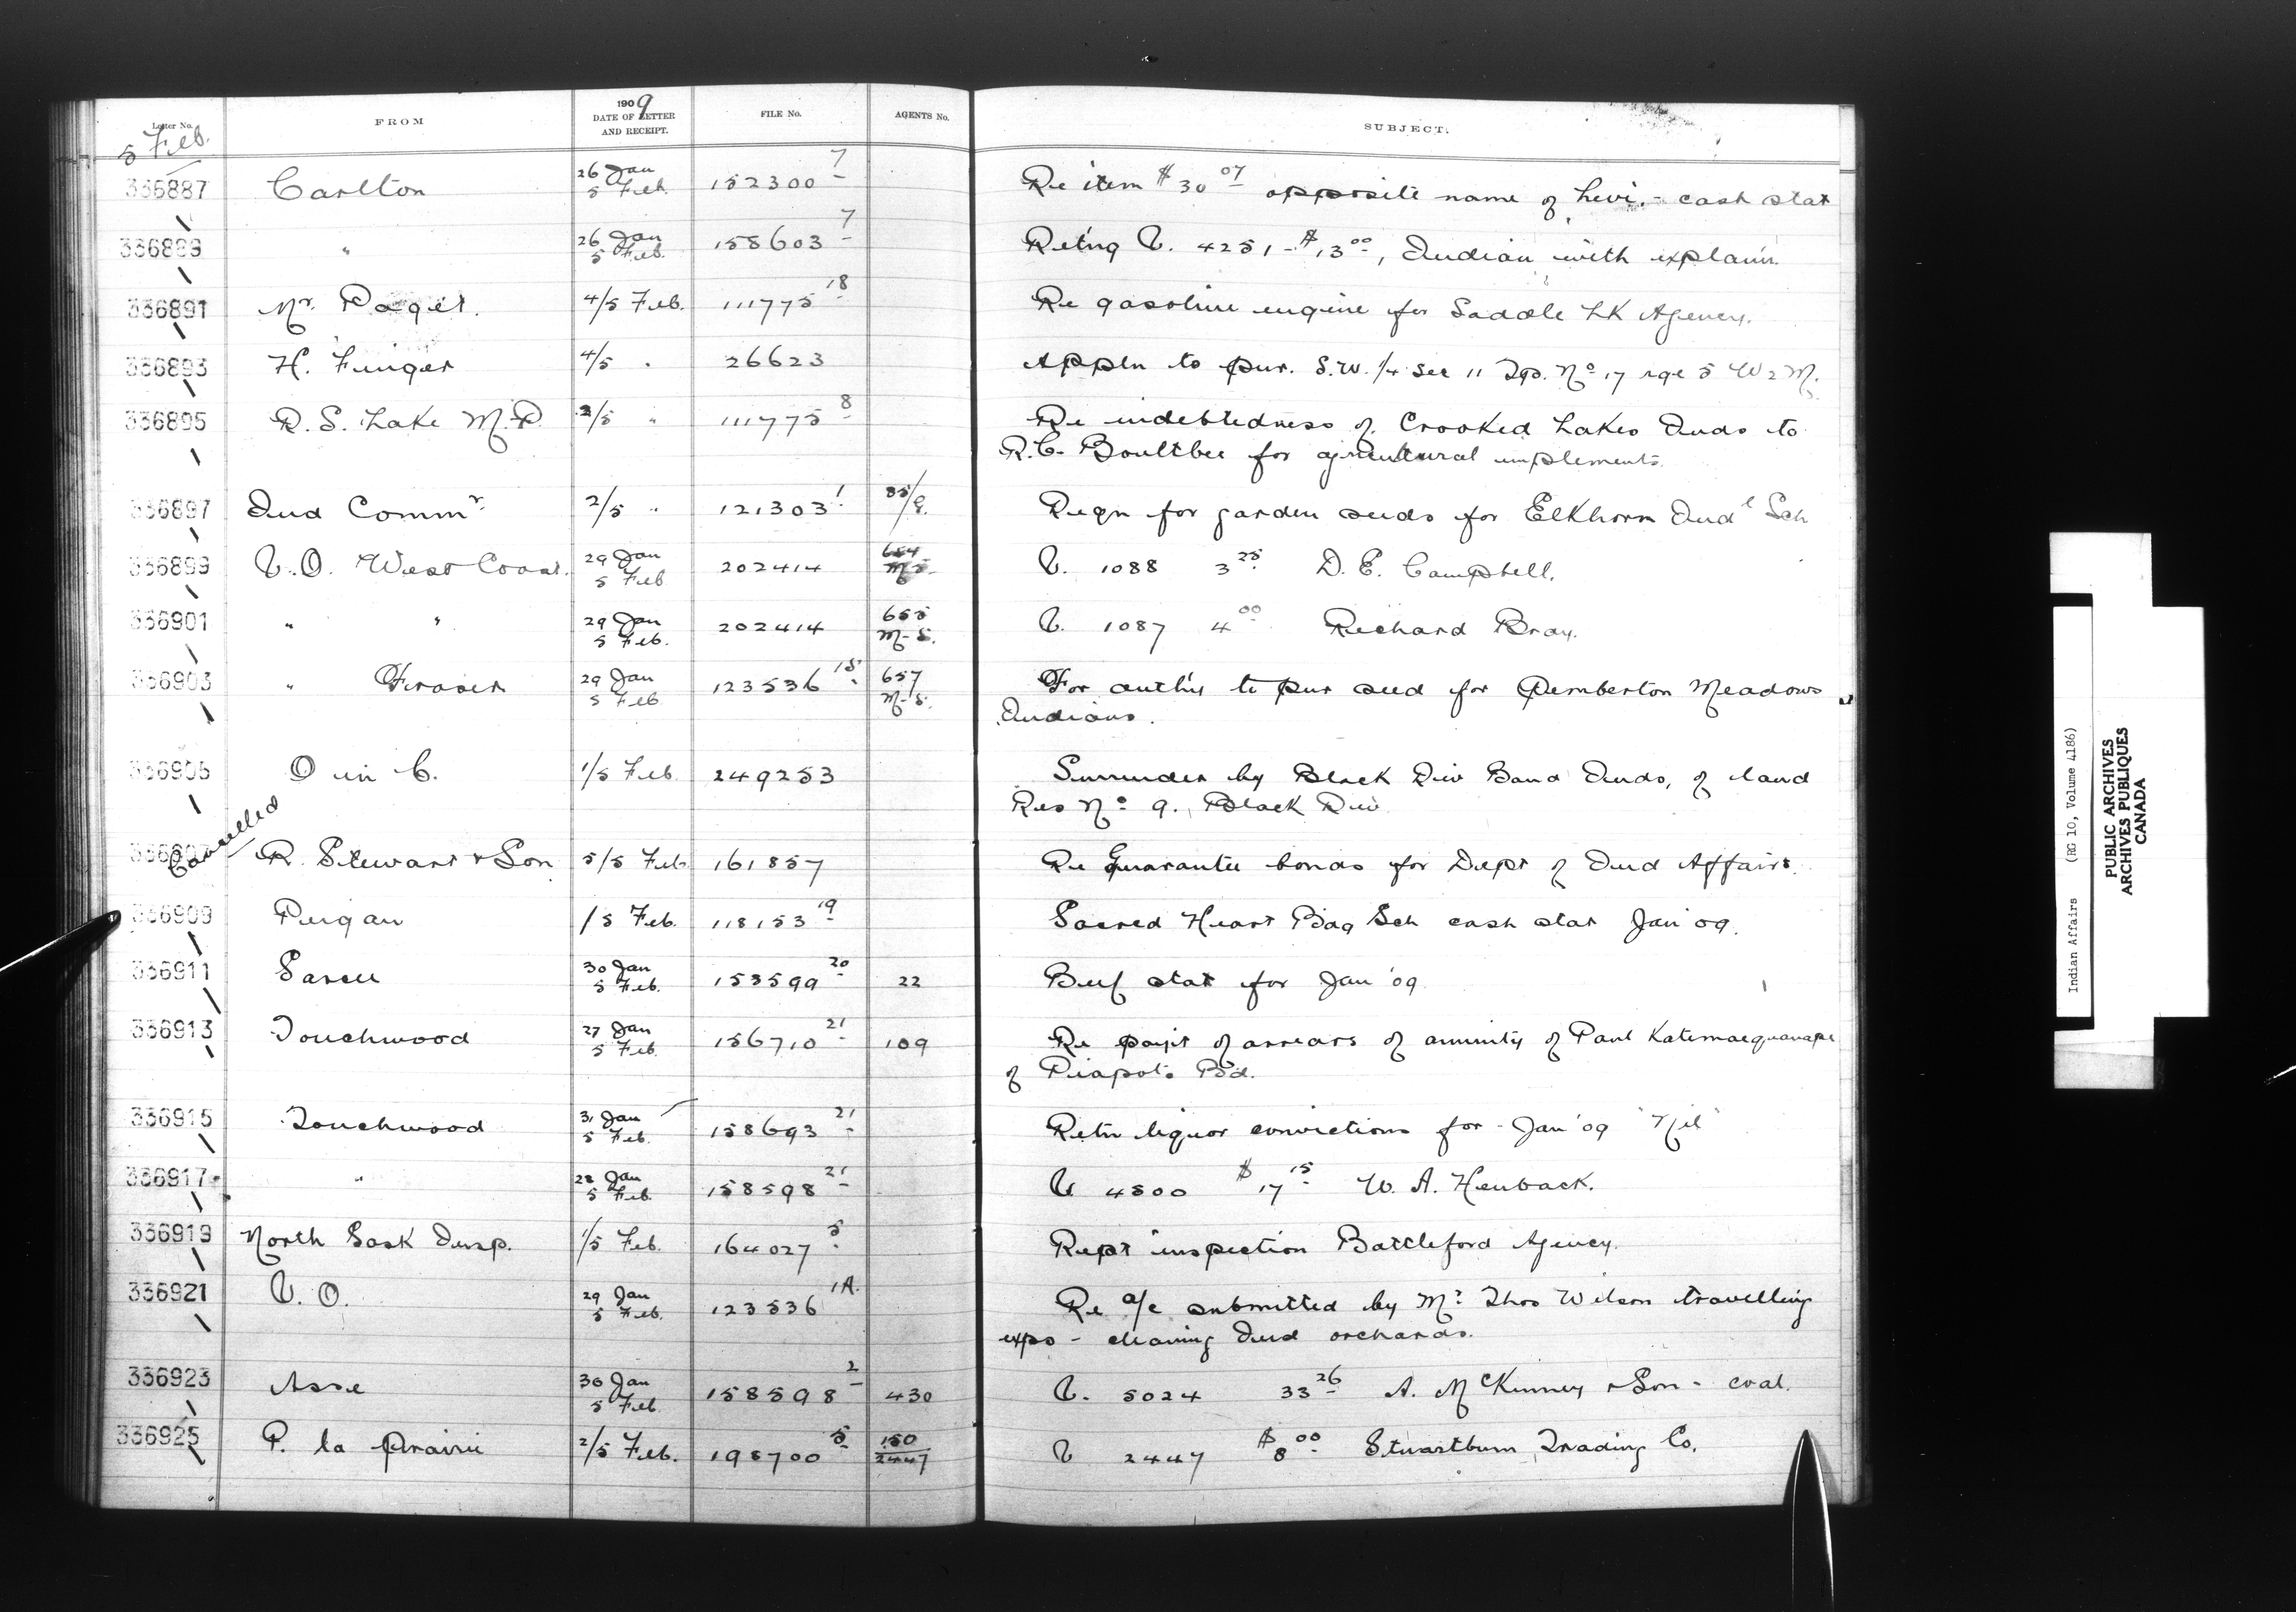 Letter No. FROM 1909 DATE OF LETTER AND RECEIPT. FILE No. AGENTS No. SUBJECT.
5 Feb.
336887 Carlton 26 Jan 5 Feb. 152300-7 Re item $30 07 opposite name of Levi - cash stat
336889 " 26 Jan 5 Feb. 158603-7 Retng V. 4251 - $13 00, Indian with explan'n
336891 Mr. Paget. 4/5 Feb. 111775-18 Re gasoline engine for Saddle Lk Agency.
336893 H. Finger 4/5 " 26623 Appln to pur. S.W. 1/4 Sec 11 Tp. No 17 rge 5 W 2 M.
336895 R. S. Lake M.P. 2/5 " 111775-8 Re indebtedness of Crooked Lakes Inds to
R.C. Boultbee for agricultural implements.
336897 Ind Commr 2/5 " 121303-1 85/G. Reqn for garden seeds for Elkhorn Indl Sch
336899 V.O. West Coast. 29 Jan 5 Feb 202414 654 M-S. V. 1088 3 25 D. E. Campbell.
336901 " " 29 Jan 5 Feb. 202414 655 M-S. V. 1087 4 00 Richard Bray.
336903 " Fraser 29 Jan 5 Feb. 123536-15 657 M-S. For auth'y to pur seed for Pemberton Meadows
Indians.
336905 O in C. 1/5 Feb. 249253 Surrender by Black Riv Band Inds, of land
Res No 9., Black Riv.
Cancelled
336907 R. Stewart & Son 5/5 Feb 161857 Re Guarantee bonds for Dept of Ind Affairs.
336909 Peigan /5 Feb. 118153-19 Sacred Heart Bdg Sch cash stat Jan '09.
336911 Sarcee 30 Jan 5 Feb. 153599-20 22 Beef stat for Jan '09
336913 Touchwood 27 Jan 5 Feb. 156710-21 109 Re paym't of arrears of annuity of Paul
of Piapots Bd.
336915 Touchwood 31 Jan 5 Feb. 158693-21 Retn liquor convictions for - Jan '09 "Nil"
336917 " 28 Jan 5 Feb. 158598-21 V. 4500 $17 15 W. A. Heuback.
336919 North Sask Insp. 1/5 Feb. 164027-5 Rept inspection Battleford Agency.
336921 V. O. 29 Jan 5 Feb. 123536 1A. Re a/c submitted by Mr. Thos Wilson travelling
exps - cleaning Ind orchards.
336923 Asse 30 Jan 5 Feb. 158598-2 430 V. 5024 33 26 A. McKinney & Son - coal.
336925 P. la Prairie 2/5 Feb. 198700-5 150 2447 V 2447 $8 00 Stuartburn Trading Co.
Indian Affairs (RG 10, Volume 4186)
PUBLIC ARCHIVES
ARCHIVES PUBLIQUES
CANADA